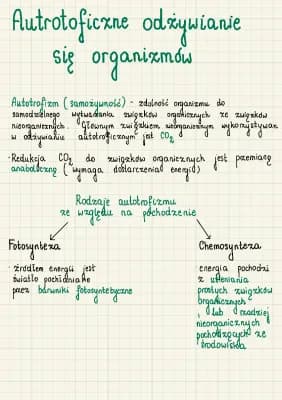 Autrotoficzne odżywianie
się organizmów
Autotrofizm (samożywność) - zdolność organizmu do
samodzielnego wytwarzania związków organicznych ze związków
nieorganicznych. Głównym związkiem nieorganicznym wykorzystywan
w odżywianiu autotroficznym jest CO2
·Redukcja CO2 do związków organicznych jest przemianą
anaboliczną (wymaga dostarczenia energii)
Rodzaje autotrofizmu
ze względu na pochodzenie
Fotosynteza
Chemosynteza
· źródłem energii jest
światło pochłaniane
przez barwniki fotosyntetyczne
energia pochodzi
z utleniania
prostych związków
organicznych
lub rzadziej
nieorganicznych
pochodzących ze
środowiska